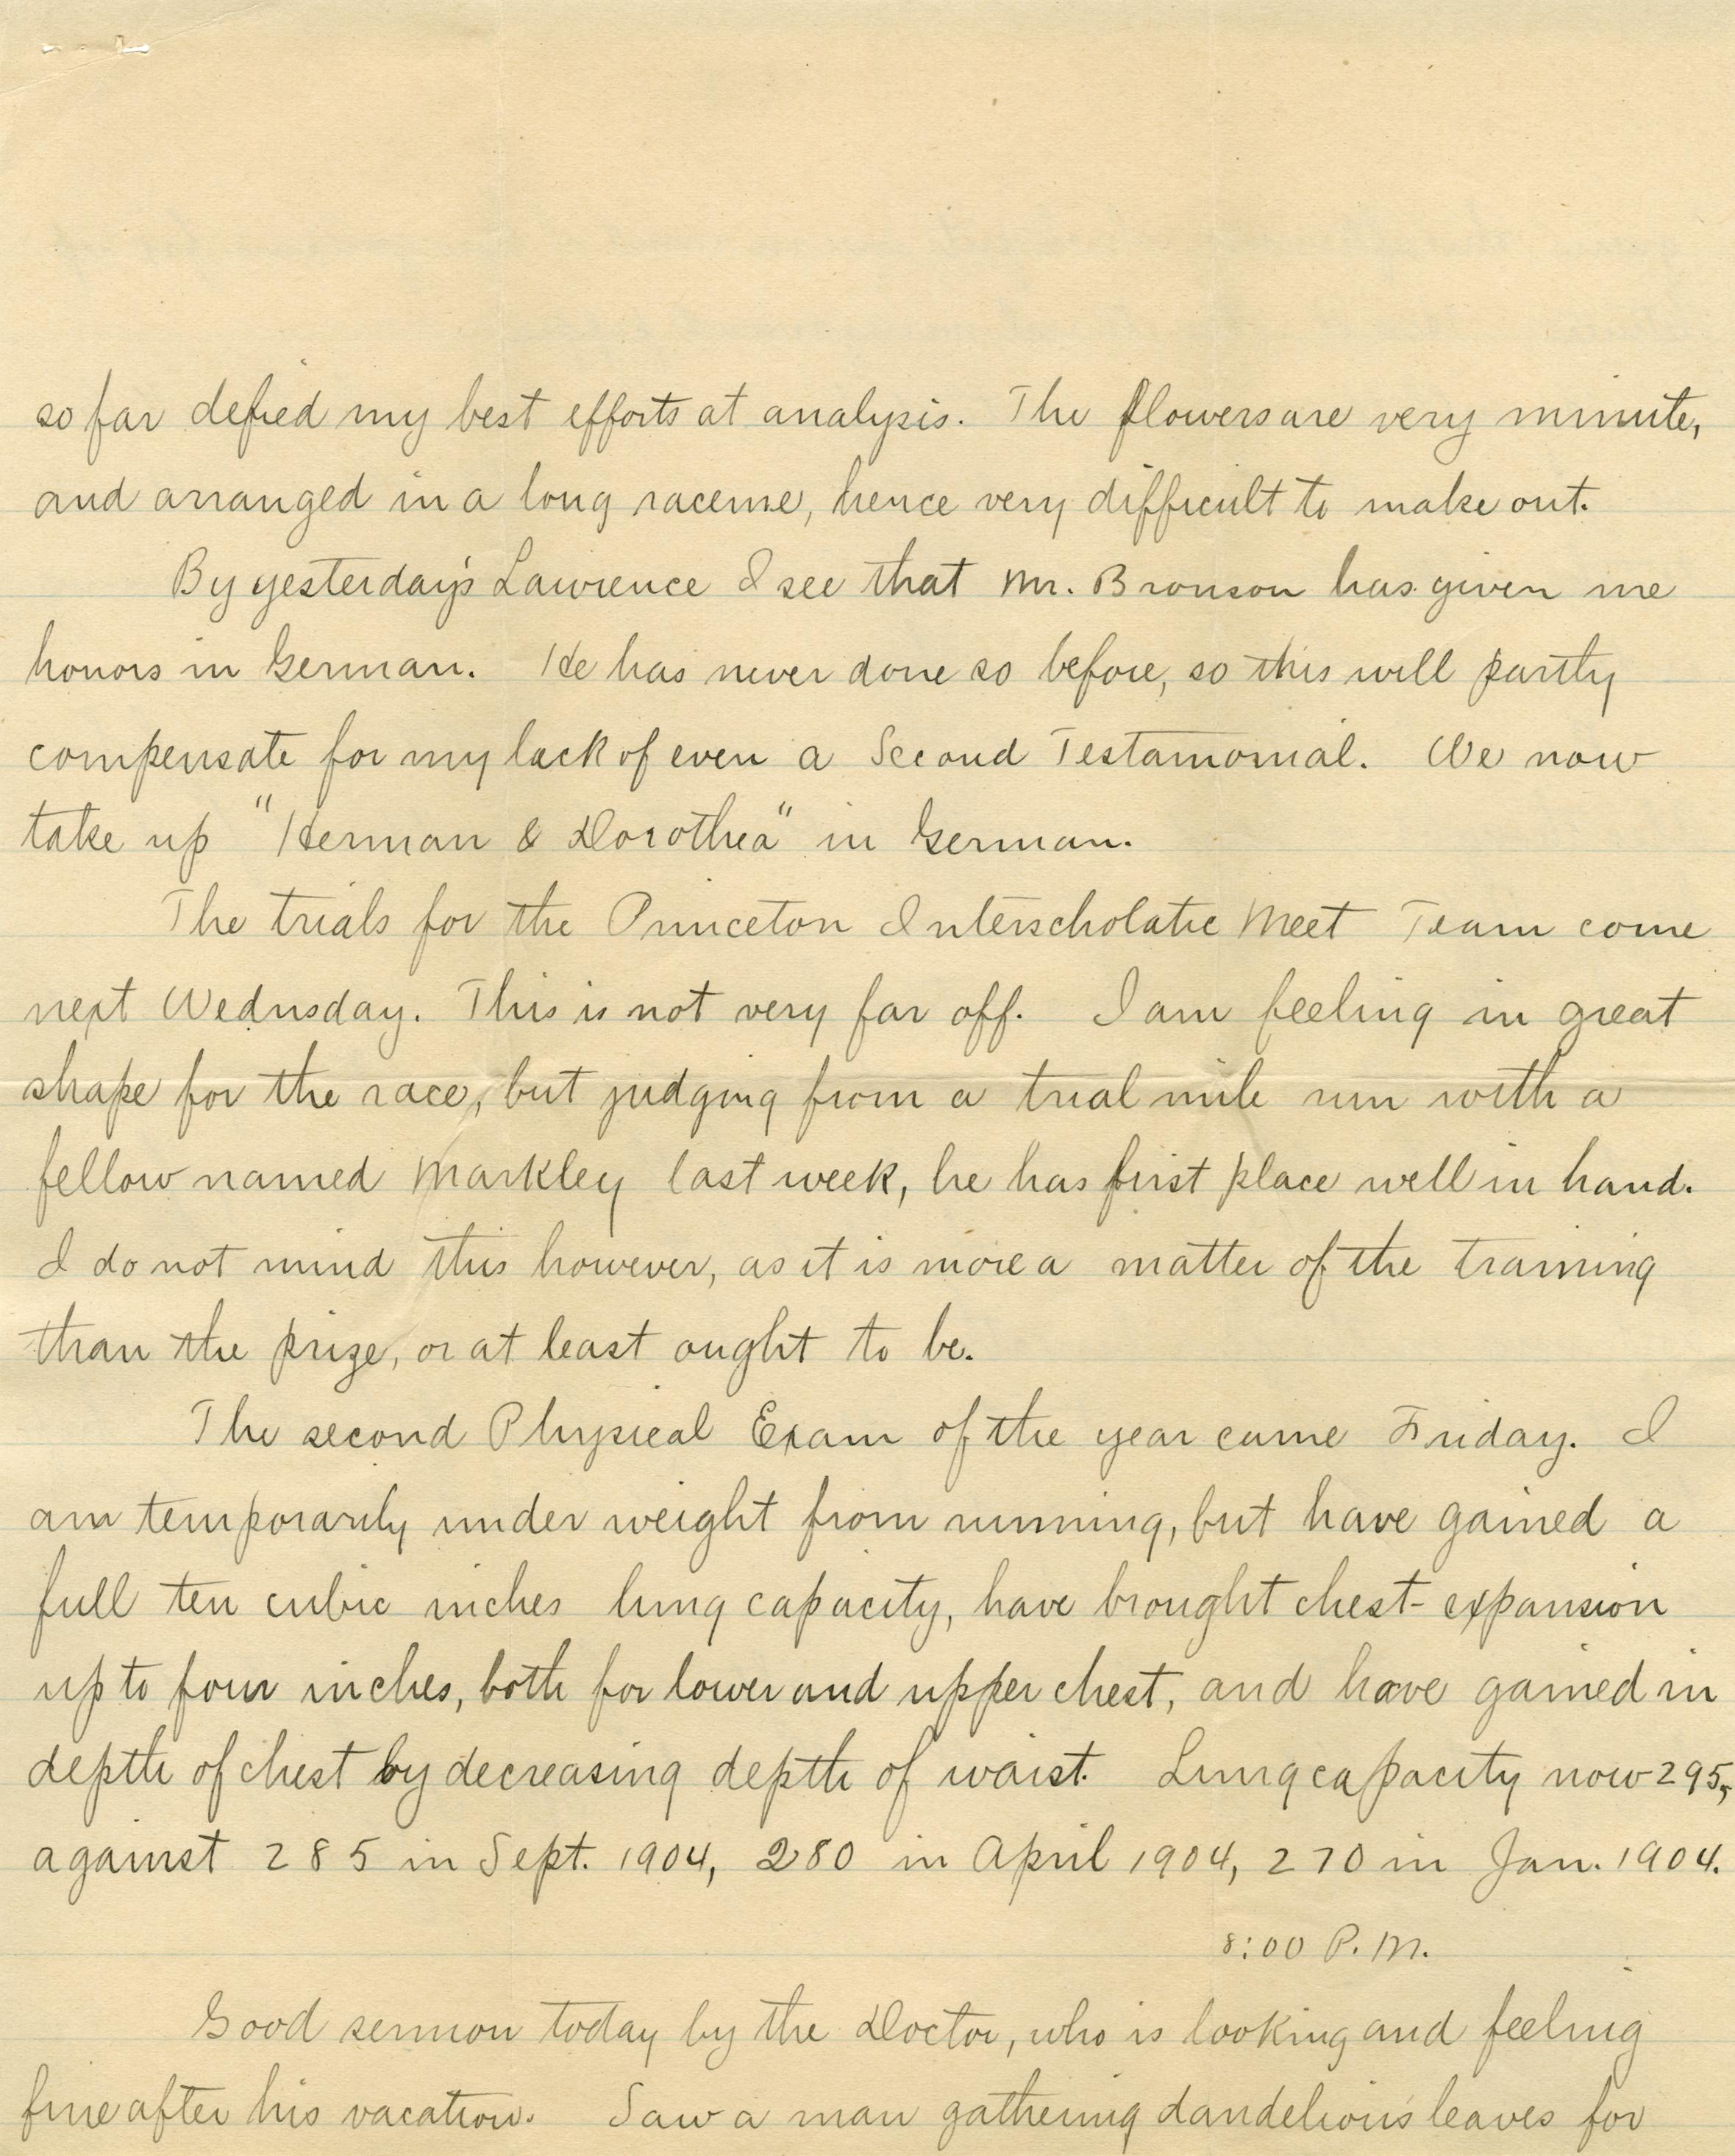 so far defied my best efforts at analysis. The flowers are very minute,
and arranged in a long raceme, hence very difficult to make out.
By yesterday's Lawrence I see that Mr. Bronson has given me
honors in German. He has never done so before, so this will partly
compensate for my lack of even a Second Testamonial. We now
take up "Herman & Dorothea" in German.
The trials for the Princeton Interscholatic Meet Team come
next Wednsday. This is not very far off. I am feeling in great
shape for the race, but judging from a trial mile run with a
fellow named Markley last week, he has first place well in hand.
I do not mind this however, as it is more a matter of the training
than the prize, or at least ought to be.
The second Physical Exam of the year came Friday. I
am temporarily under weight from running, but have gained a
full ten cubic inches lung capacity, have brought chest-expansion
up to four inches, both for lower and upper chest, and have gained in
depth of chest by decreasing depth of waist. Lung capacity now 295,
against 285 in Sept. 1904, 280 in April 1904, 270 in Jan. 1904.
8:00 P.M.
Good sermon today by the Doctor, who is looking and feeling
fine after his vacation. Saw a man gathering dandelions leaves for